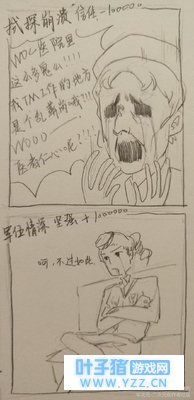 找踩崩溃 信任-100000
WDC医院里
这么多鬼么!!!!
我TM工作的地方
是个乱葬岗哦?!!!
WOOO
医者仁心呢??!!
军伍情深 坚强+1000000
呵,不过如此
叶子猪游戏网
www.YZZ.CN